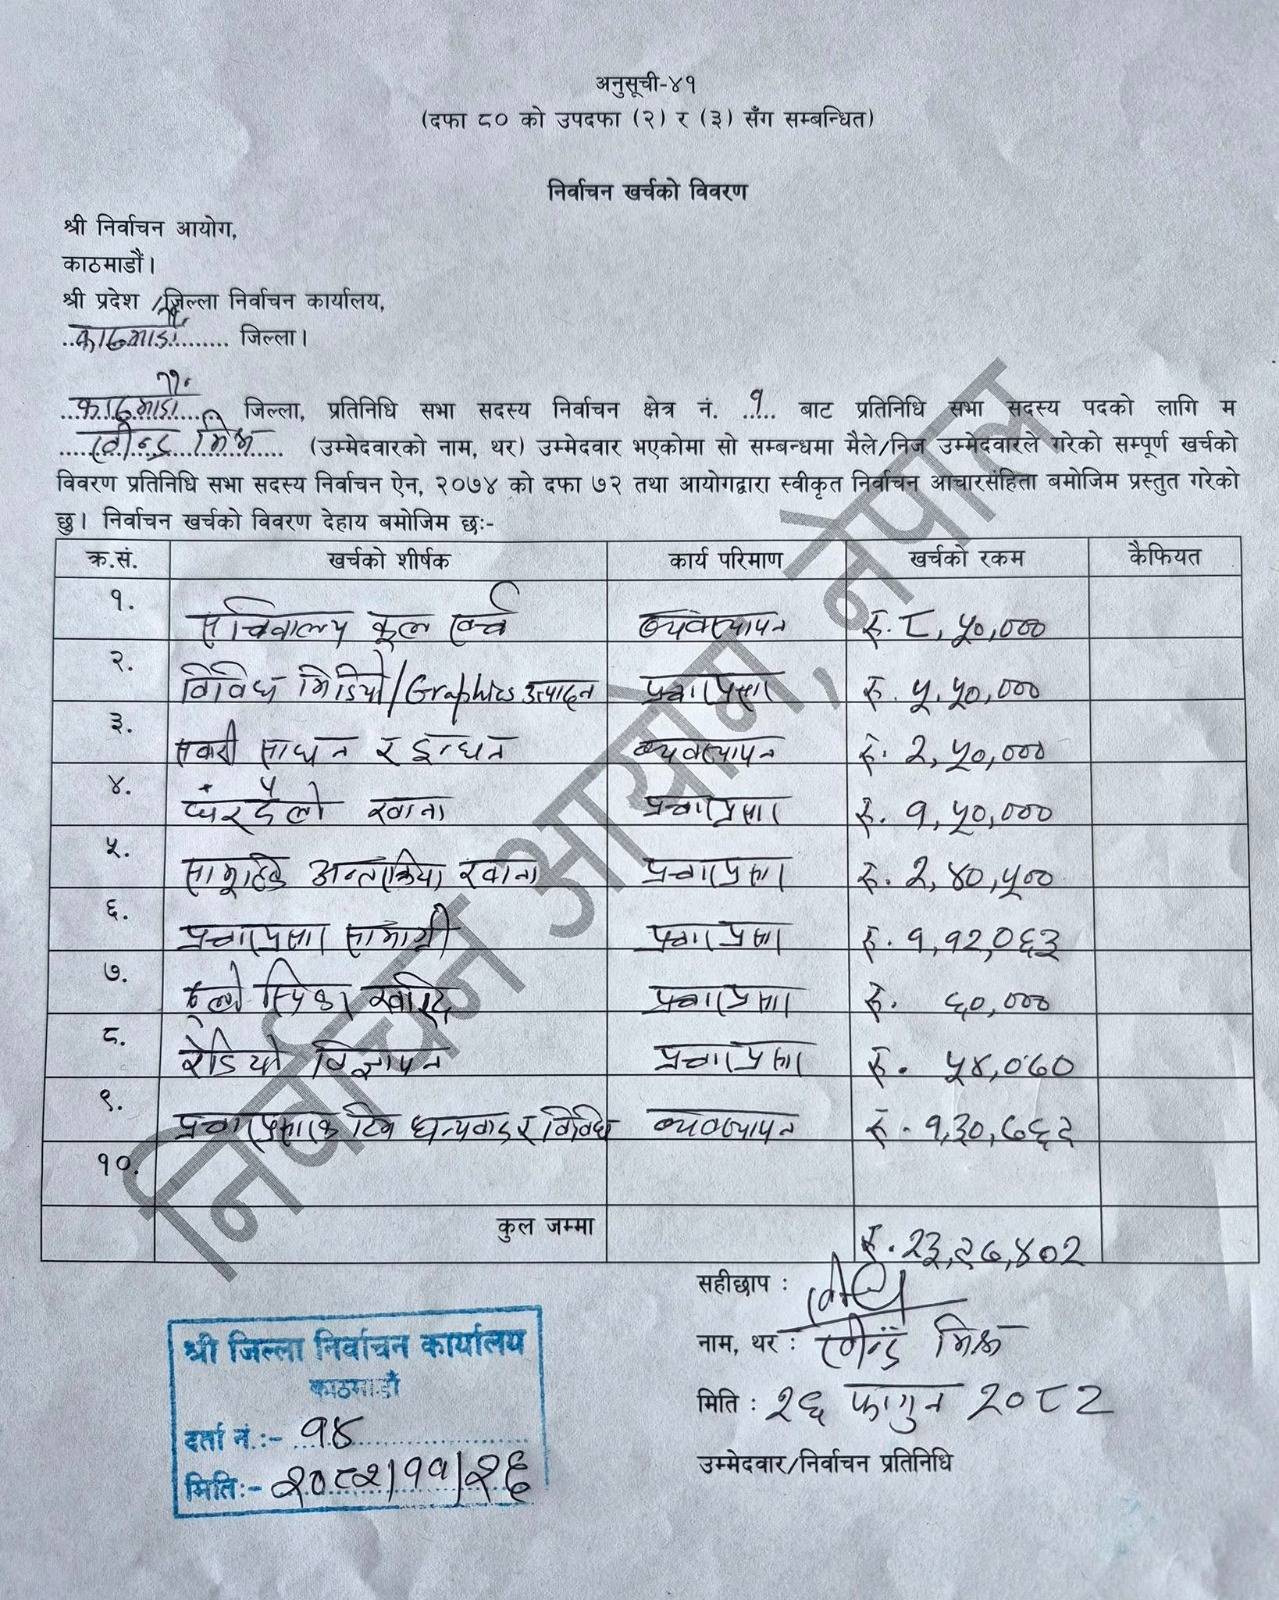 अनुसूची-४१
(दफा ८० को उपदफा (२) र (३) सँग सम्बन्धित)
निर्वाचन खर्चको विवरण
श्री निर्वाचन आयोग,
काठमाडौं।
श्री प्रदेश /जिल्ला निर्वाचन कार्यालय,
काठमाडौं जिल्ला।
काठमाडौं जिल्ला, प्रतिनिधि सभा सदस्य निर्वाचन क्षेत्र नं. १ बाट प्रतिनिधि सभा सदस्य पदको लागि म
रवीन्द्र मिश्र (उम्मेदवारको नाम, थर) उम्मेदवार भएकोमा सो सम्बन्धमा मैले/निज उम्मेदवारले गरेको सम्पूर्ण खर्चको
विवरण प्रतिनिधि सभा सदस्य निर्वाचन ऐन, २०७४ को दफा ७२ तथा आयोगद्वारा स्वीकृत निर्वाचन आचारसंहिता बमोजिम प्रस्तुत गरेको
छु। निर्वाचन खर्चको विवरण देहाय बमोजिम छः-
क्र.सं. खर्चको शीर्षक कार्य परिमाण खर्चको रकम कैफियत
१. सचिवालय कूल खर्च व्यवस्थापन रु. ८,५०,०००
२. विविध भिडियो/Graphics उत्पादन प्रचारप्रसार रु. ५,५०,०००
३. सवारी साधन र इन्धन व्यवस्थापन रु. २,५०,०००
४. घरदैलो खाना प्रचारप्रसार रु. १,५०,०००
५. सामूहिक अन्तरक्रिया खाना प्रचारप्रसार रु. २,४०,५००
६. प्रचारप्रसार सामाग्री प्रचारप्रसार रु. १,१२,०६३
७. ठूलो स्पिकर खरिद प्रचारप्रसार रु. ६०,०००
८. रेडियो विज्ञापन प्रचारप्रसार रु. ५४,०७०
९. प्रचारप्रसारक टिम धन्यवाद र विविध व्यवस्थापन रु. १,३०,७६२
१०.
कुल जम्मा रु. २३,९७,४०२
सहीछाप :
नाम, थर : रवीन्द्र मिश्र
मिति : २६ फागुन २०८२
उम्मेदवार/निर्वाचन प्रतिनिधि
श्री जिल्ला निर्वाचन कार्यालय
काठमाडौं
दर्ता नं.:- १४
मिति:- २०८२/११/२६
निर्वाचन आयोग, नेपाल